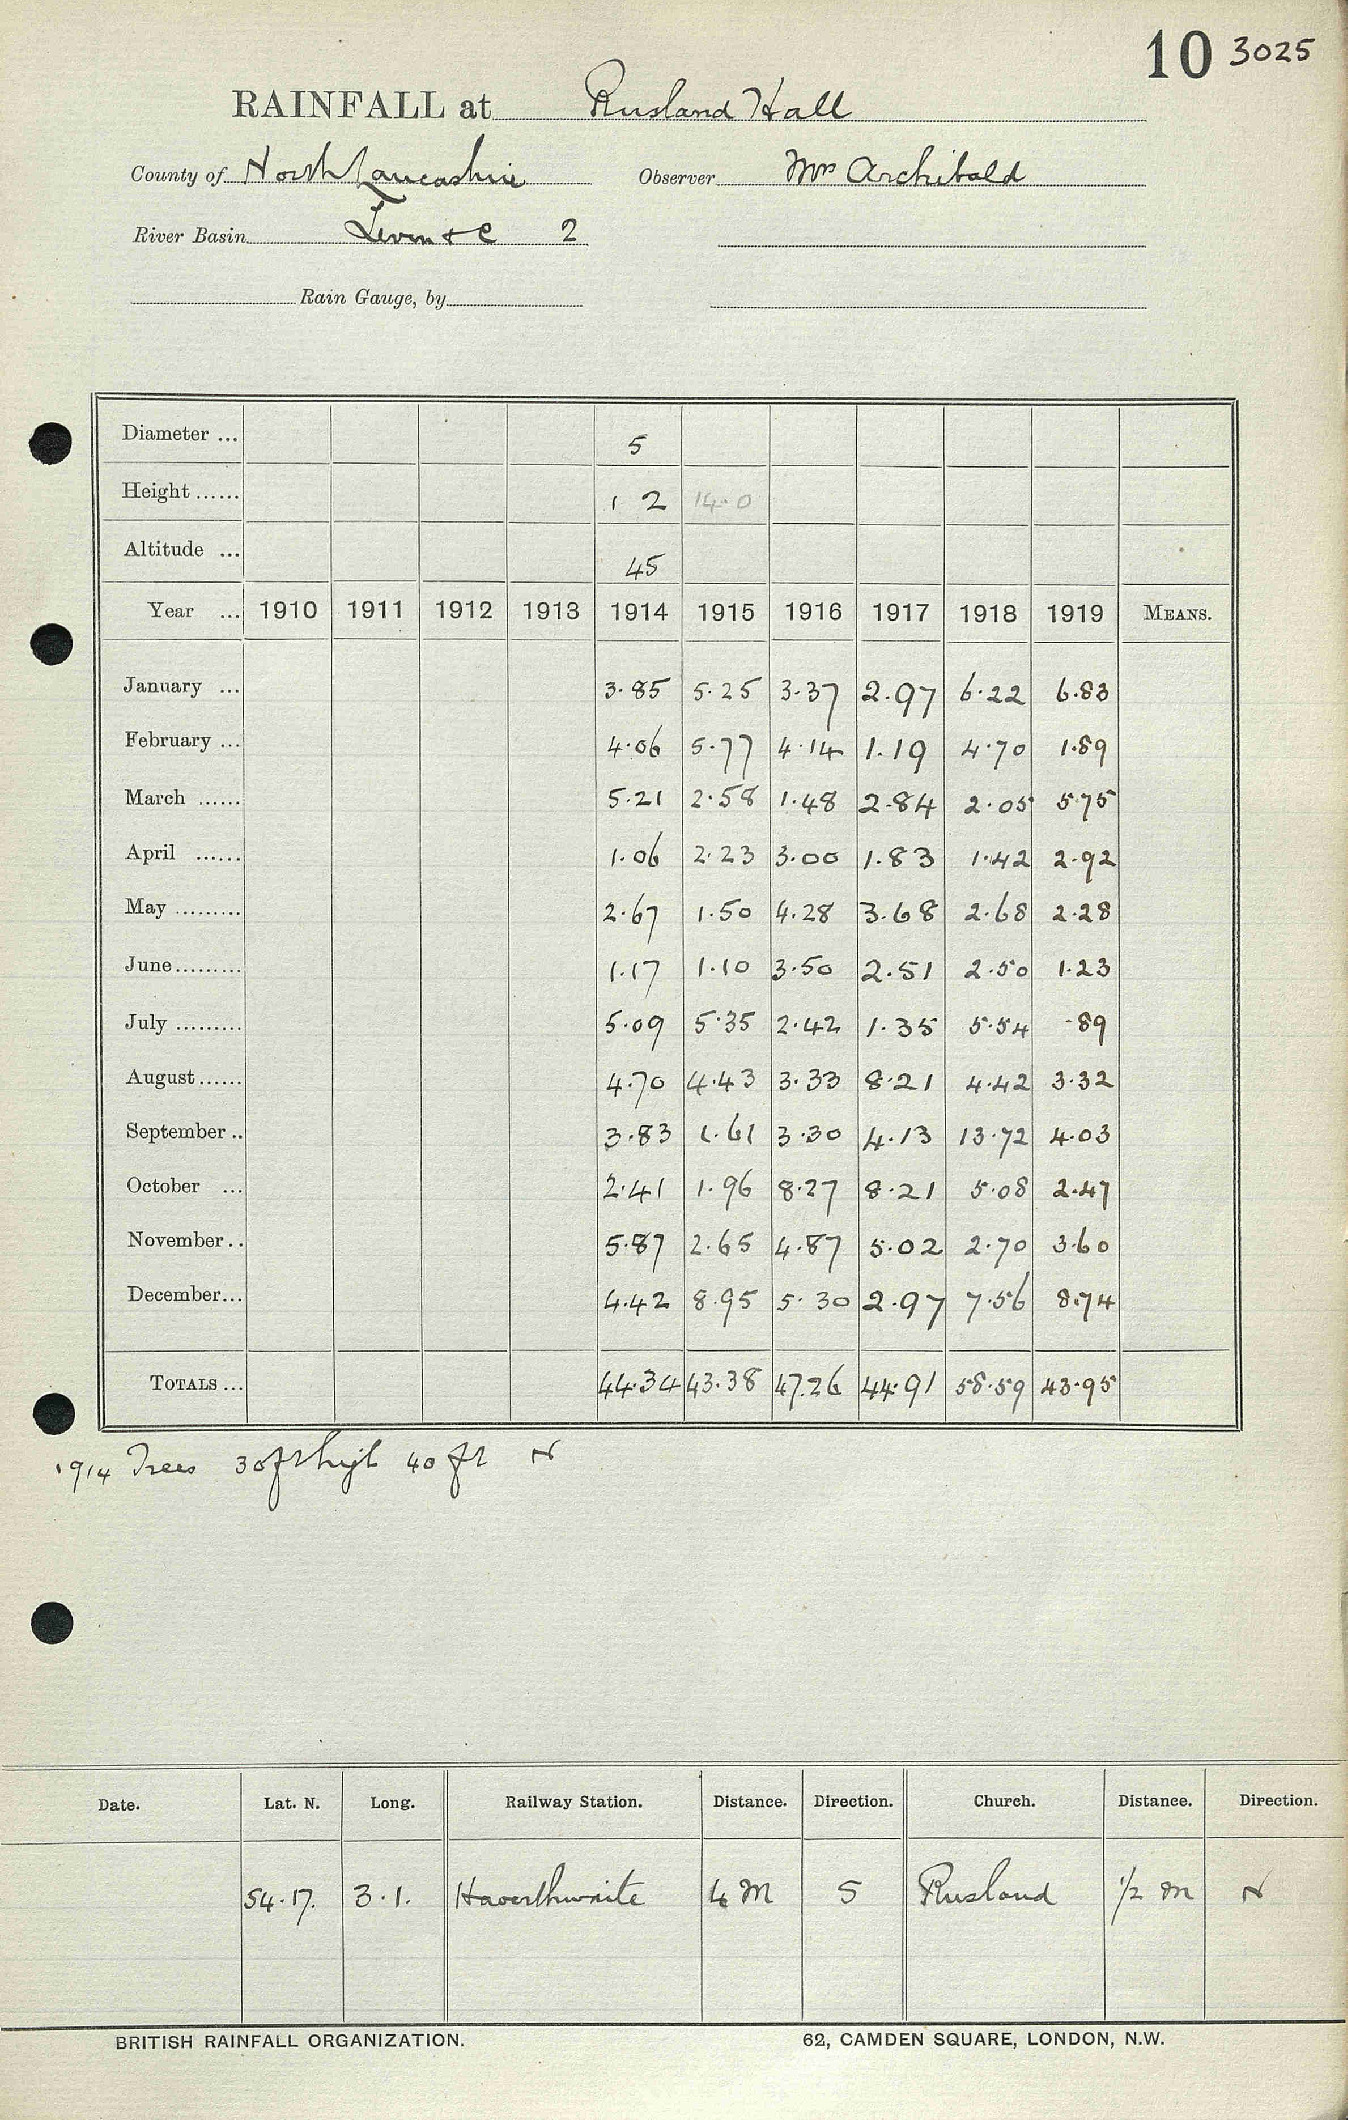 10 3025
RAINFALL at Rusland Hall
County of North Lancashire Observer Mrs Archibald
River Basin Leven &c 2
Rain Gauge, by
Diameter ... 5
Height ...... 1 2 14.0
Altitude ... 45
Year ... 1910 1911 1912 1913 1914 1915 1916 1917 1918 1919 MEANS.
January ... 3.85 5.25 3.37 2.97 6.22 6.83
February ... 4.06 5.77 4.14 1.19 4.70 1.89
March ...... 5.21 2.58 1.48 2.84 2.05 5.75
April ...... 1.06 2.23 3.00 1.83 1.42 2.92
May ......... 2.67 1.50 4.28 3.68 2.68 2.28
June ......... 1.17 1.10 3.50 2.51 2.50 1.23
July ......... 5.09 5.35 2.42 1.35 5.54 .89
August ...... 4.70 4.43 3.33 8.21 4.42 3.32
September .. 3.83 1.61 3.30 4.13 13.72 4.03
October ... 2.41 1.96 8.27 8.21 5.08 2.47
November .. 5.87 2.65 4.87 5.02 2.70 3.60
December ... 4.42 8.95 5.30 2.97 7.56 8.74
TOTALS ... 44.34 43.38 47.26 44.91 58.59 43.95
1914 Trees 30ft high 40 ft N
Date. Lat. N. Long. Railway Station. Distance. Direction. Church. Distance. Direction.
54.17. 3.1. Haverthwaite 4 M S Rusland 1/2 m N
BRITISH RAINFALL ORGANIZATION. 62, CAMDEN SQUARE, LONDON, N.W.